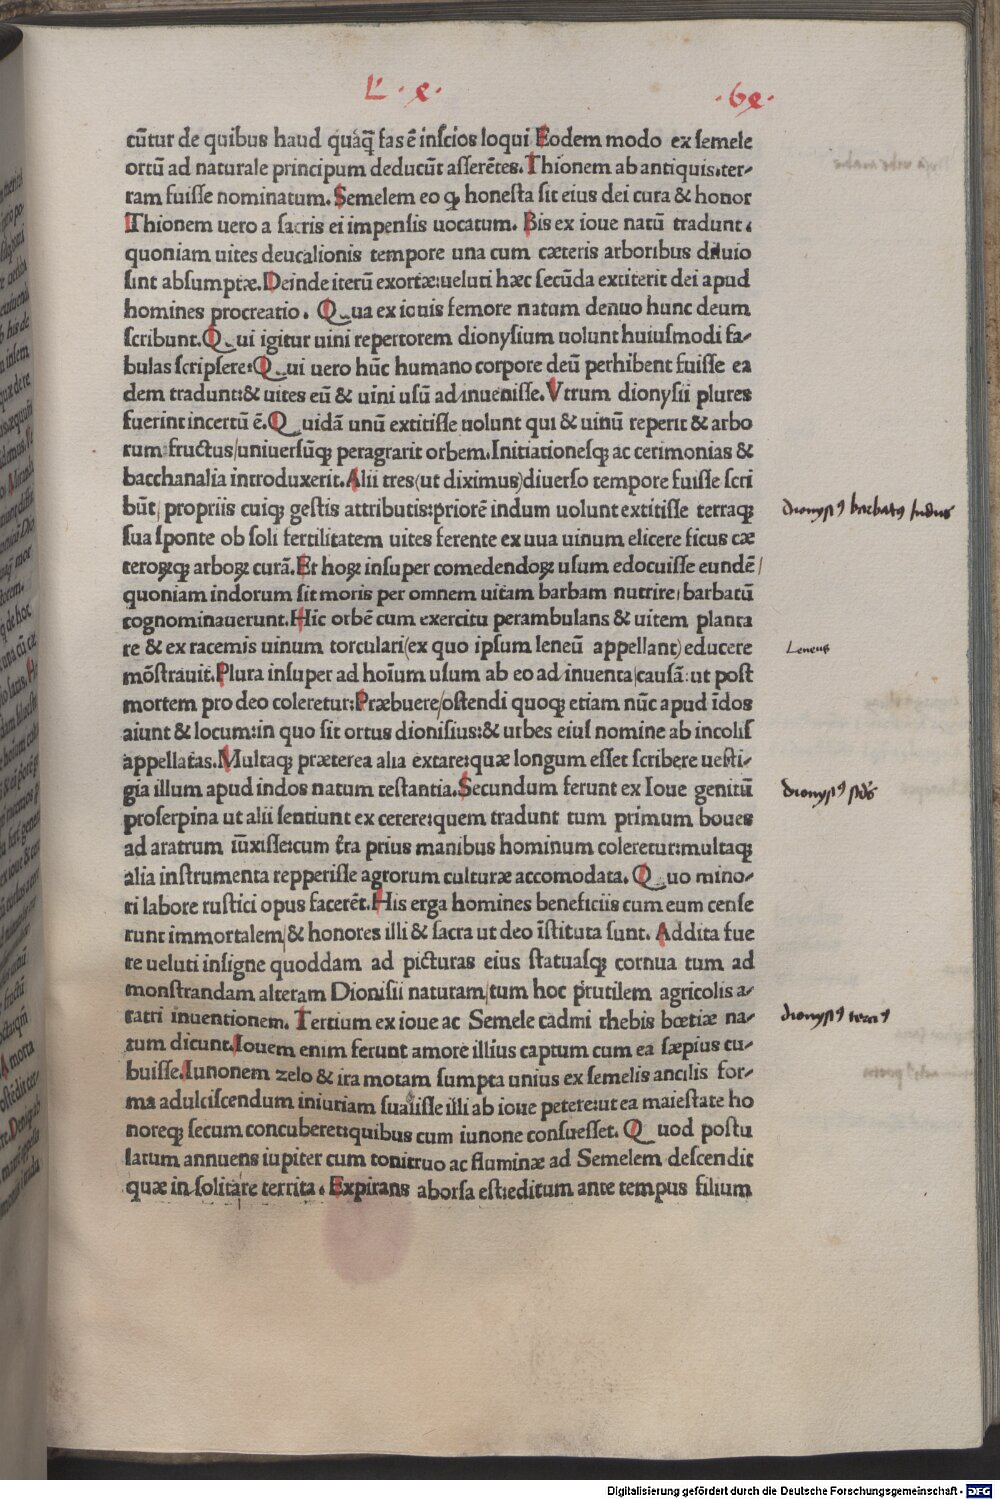 L · e ·
cūtur de quibus haud quáq̄ fas ē inſcios loqui Eodem modo ex ſemele
ortū ad naturale principum deducūt aſſerētes. Thionem ab antiquis.ter-
ram fuiſſe nominatum. Semelem eo ꝙ honeſta ſit eius dei cura & honor
Thionem uero a ſacris ei impenſis uocatum. Bis ex ioue natū tradunt.
quoniam uites deucalionis tempore una cum cæteris arboribus diluio
ſint abſumptæ. Deinde iterū exortæ:ueluti hæc ſecūda extiterit dei apud
homines procreatio. Qua ex iouis femore natum denuo hunc deum
ſcribunt. Qui igitur uini repertorem dionyſium uolunt huiuſmodi fa-
bulas ſcripſere: Qui uero hūc humano corpore deū perhibent fuiſſe ea
dem tradunt:& uites eū & uini uſū adinueniſſe. Vtrum dionyſii plures
fuerint incertū ē. Quidā unū extitiſſe uolunt qui & uinū reperit & arbo
rum fructus/uniuerſūqꝫ peragrarit orbem. Initiationeſqꝫ ac cerimonias &
bacchanalia introduxerit. Alii tres(ut diximus)diuerſo tempore fuiſſe ſcri
būt/ propriis cuiqꝫ geſtis attributis:priorē indum uolunt extitiſſe terraqꝫ
ſua ſponte ob ſoli fertilitatem uites ferente ex uua uinum elicere ficus cæ
teroꝝqꝫ arboꝝ curā. Et hoꝝ inſuper comedendoꝝ uſum edocuiſſe eundē/
quoniam indorum ſit moris per omnem uitam barbam nutrire: barbatū
cognominauerunt. Hic orbē cum exercitu perambulans & uitem planta
re & ex racemis uinum torculari(ex quo ipſum leneū appellant) educere
mōſtrauit. Plura inſuper ad hoīum uſum ab eo ad inuenta/cauſā: ut poſt
mortem pro deo coleretur: Præbuere/oſtendi quoqꝫ etiam nūc apud īdos
aiunt & locum:in quo ſit ortus dioniſius:& urbes eiuſ nomine ab incoliſ
appellatas. Multaqꝫ præterea alia extare:quæ longum eſſet ſcribere ueſti-
gia illum apud indos natum teſtantia. Secundum ferunt ex Ioue genitū
proſerpina ut alii ſentiunt ex cerere:quem tradunt tum primum boues
ad aratrum iūxiſſe:cum t̄ra prius manibus hominum coleretur:multaqꝫ
alia inſtrumenta repperiſſe agrorum culturæ accomodata. Quo mino-
ri labore ruſtici opus facerēt. His erga homines beneficiis cum eum cenſe
runt immortalem/& honores illi & ſacra ut deo īſtituta ſunt. Addita fue
re ueluti inſigne quoddam ad picturas eius ſtatuaſqꝫ cornua tum ad
monſtrandam alteram Dioniſii naturam/tum hoc ꝑutilem agricolis a-
ratri inuentionem. Tertium ex ioue ac Semele cadmi thebis bœtiæ na-
tum dicunt. Iouem enim ferunt amore illius captum cum ea ſæpius cu-
buiſſe. Iunonem zelo & ira motam ſumpta unius ex ſemelis ancilis for-
ma adulciſcendum iniuriam ſuaſiſſe illi ab ioue petere:ut ea maieſtate ho
noreqꝫ ſecum concuberet:quibus cum iunone conſueſſet. Quod poſtu
latum annuens iupiter cum tonitruo ac fluminæ ad Semelem deſcendit
quæ in ſolitare territa. Expirans aborſa eſt:editum ante tempus filium
dionysꝰ barbatꝰ Indus
Leneus
dionysꝰ scd̄s
dionysꝰ terciꝰ
Digitalisierung gefördert durch die Deutsche Forschungsgemeinschaft - DFG